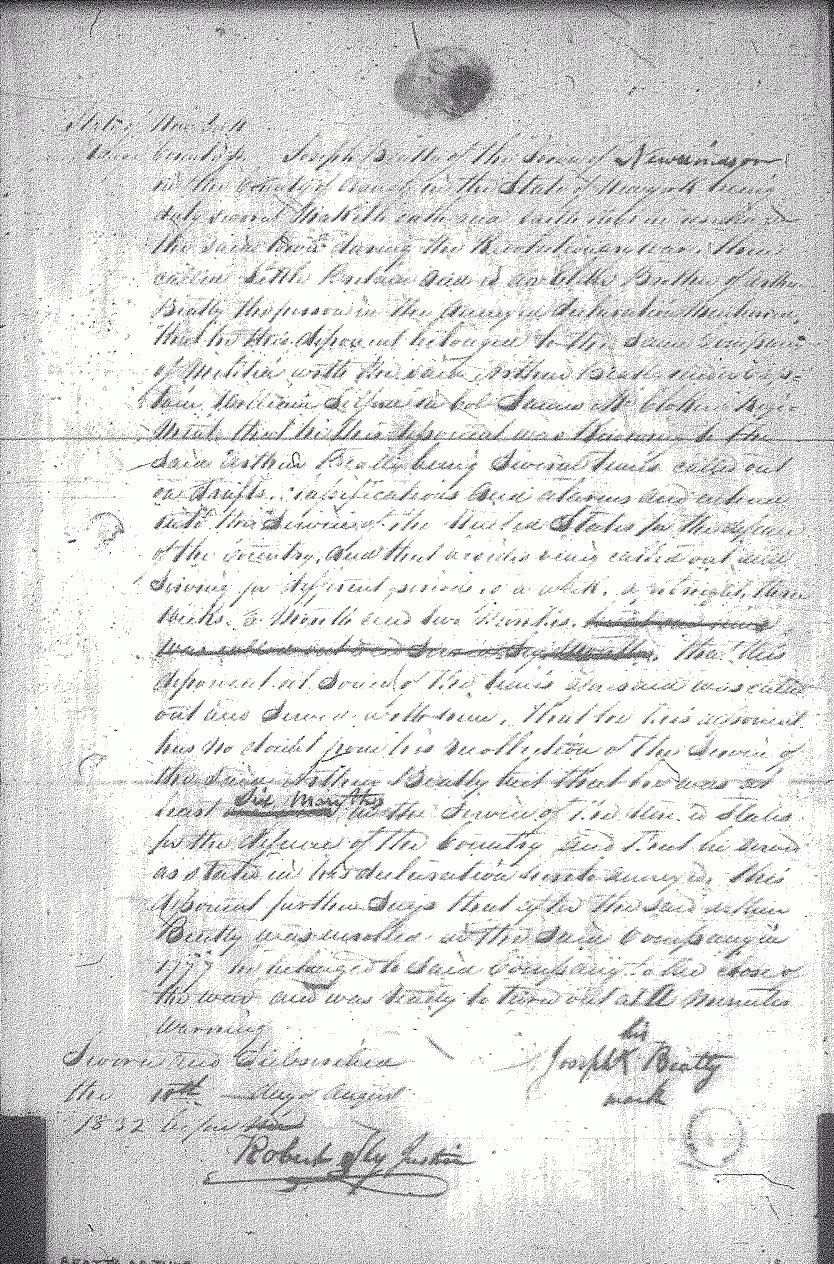 State of New York
County ss. Joseph Beatty of the Town of Newwindsor
in the County of Orange in the State of New York being
duly sworn maketh oath and saith
the said Town during the Revolutionary war, then
called Little Britain and is Brother of Arthur
Beatty the person in the annexed declaration mentioned,
that he this deponent belonged to the same Company
of Militia with the said Arthur Beatty under Cap-
tain William in Col James Mc Regi-
ment, that he this deponent was knowing to the
said Arthur Beatty being several times called out
on drafts, classifications and alarms and
into the Service of the United States for the defence
of the Country, and that besides being called out and
serving for different periods of a week, a fortnight, three
weeks, a Month and two Months,
was called out and that this
deponent at some of the times aforesaid was called
out and served with him, that he this deponent
has no doubt from his recollection of the Service of
the said Arthur Beatty but that he was at
least Six Months in the Service of the United States
for the defence of the Country and that he served
as stated in his declaration hereto annexed, this
deponent further says that after the said Arthur
Beatty was enrolled in the said Company in
1777 he belonged to said Company to the close of
the war and was ready to turn out at A minutes
warning
Sworn and Subscribed
the 10th day of August
1832 before me
his
Joseph X Beatty
mark
Robert Sly Justice